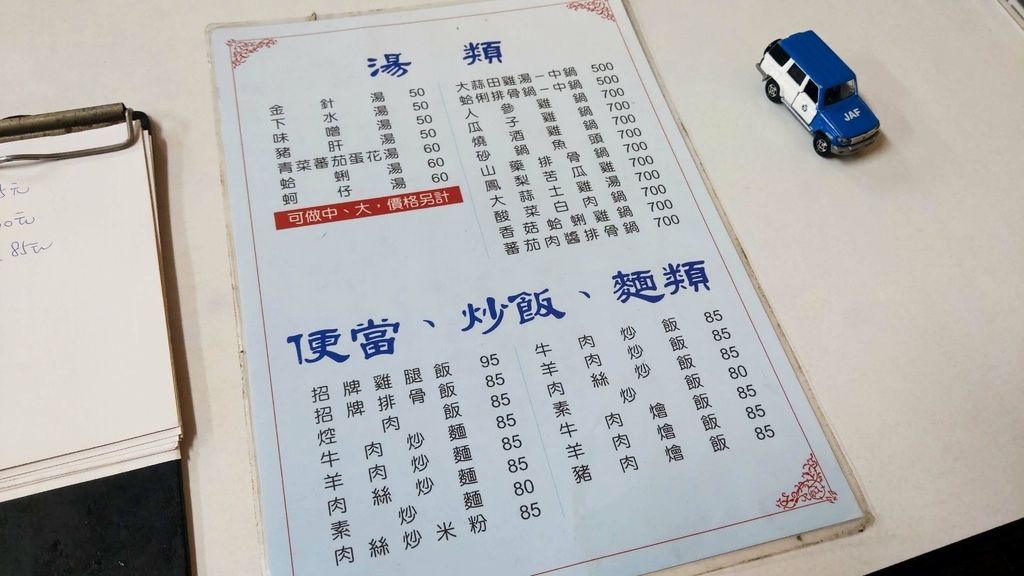 湯類
金針湯 50
下水湯 50
味噌湯 50
豬肝湯 50
青菜蕃茄蛋花湯 60
蛤蜊湯 60
蚵仔湯 60
可做中、大，價格另計
大蒜田雞湯一中鍋 500
蛤蜊排骨鍋一中鍋 500
人參雞鍋 700
瓜子雞鍋 700
燒酒雞鍋 700
砂鍋魚頭 700
山藥排骨鍋 700
鳳梨苦瓜雞 600
大蒜土雞湯 700
酸菜白肉鍋 700
香菇蛤蜊雞鍋 700
蕃茄肉醬排骨鍋 700
便當、炒飯、麵類
招牌雞腿飯 95
招牌排骨飯 85
焢肉飯 85
牛肉炒麵 85
羊肉炒麵 85
肉絲炒麵 85
素炒麵 80
肉絲炒米粉 85
牛肉炒飯 85
羊肉炒飯 85
肉絲炒飯 85
素炒飯 80
牛肉燴飯 85
羊肉燴飯 85
豬肉燴飯 85
JAF
5元
0元
85元